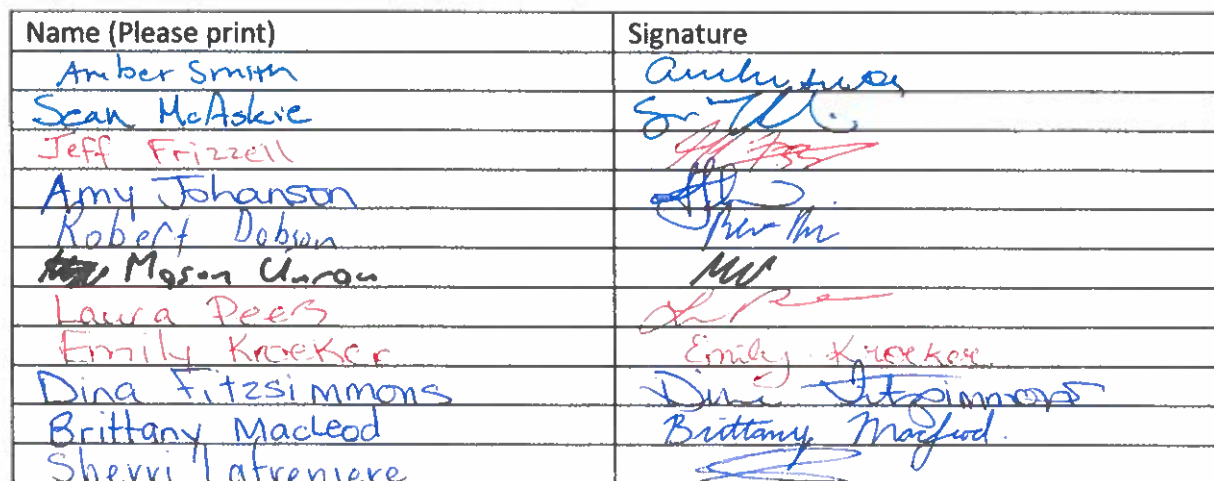 Name (Please print) Signature
Amber Smith
Sean McAskie
Jeff Frizzell
Amy Johanson
Robert Dobson
Mason Unrau
Laura Peers
Emily Kroeker Emily Kroeker
Dina Fitzsimmons Dina Fitzsimmons
Brittany MacLeod Brittany MacLeod
Sherri Lafreniere